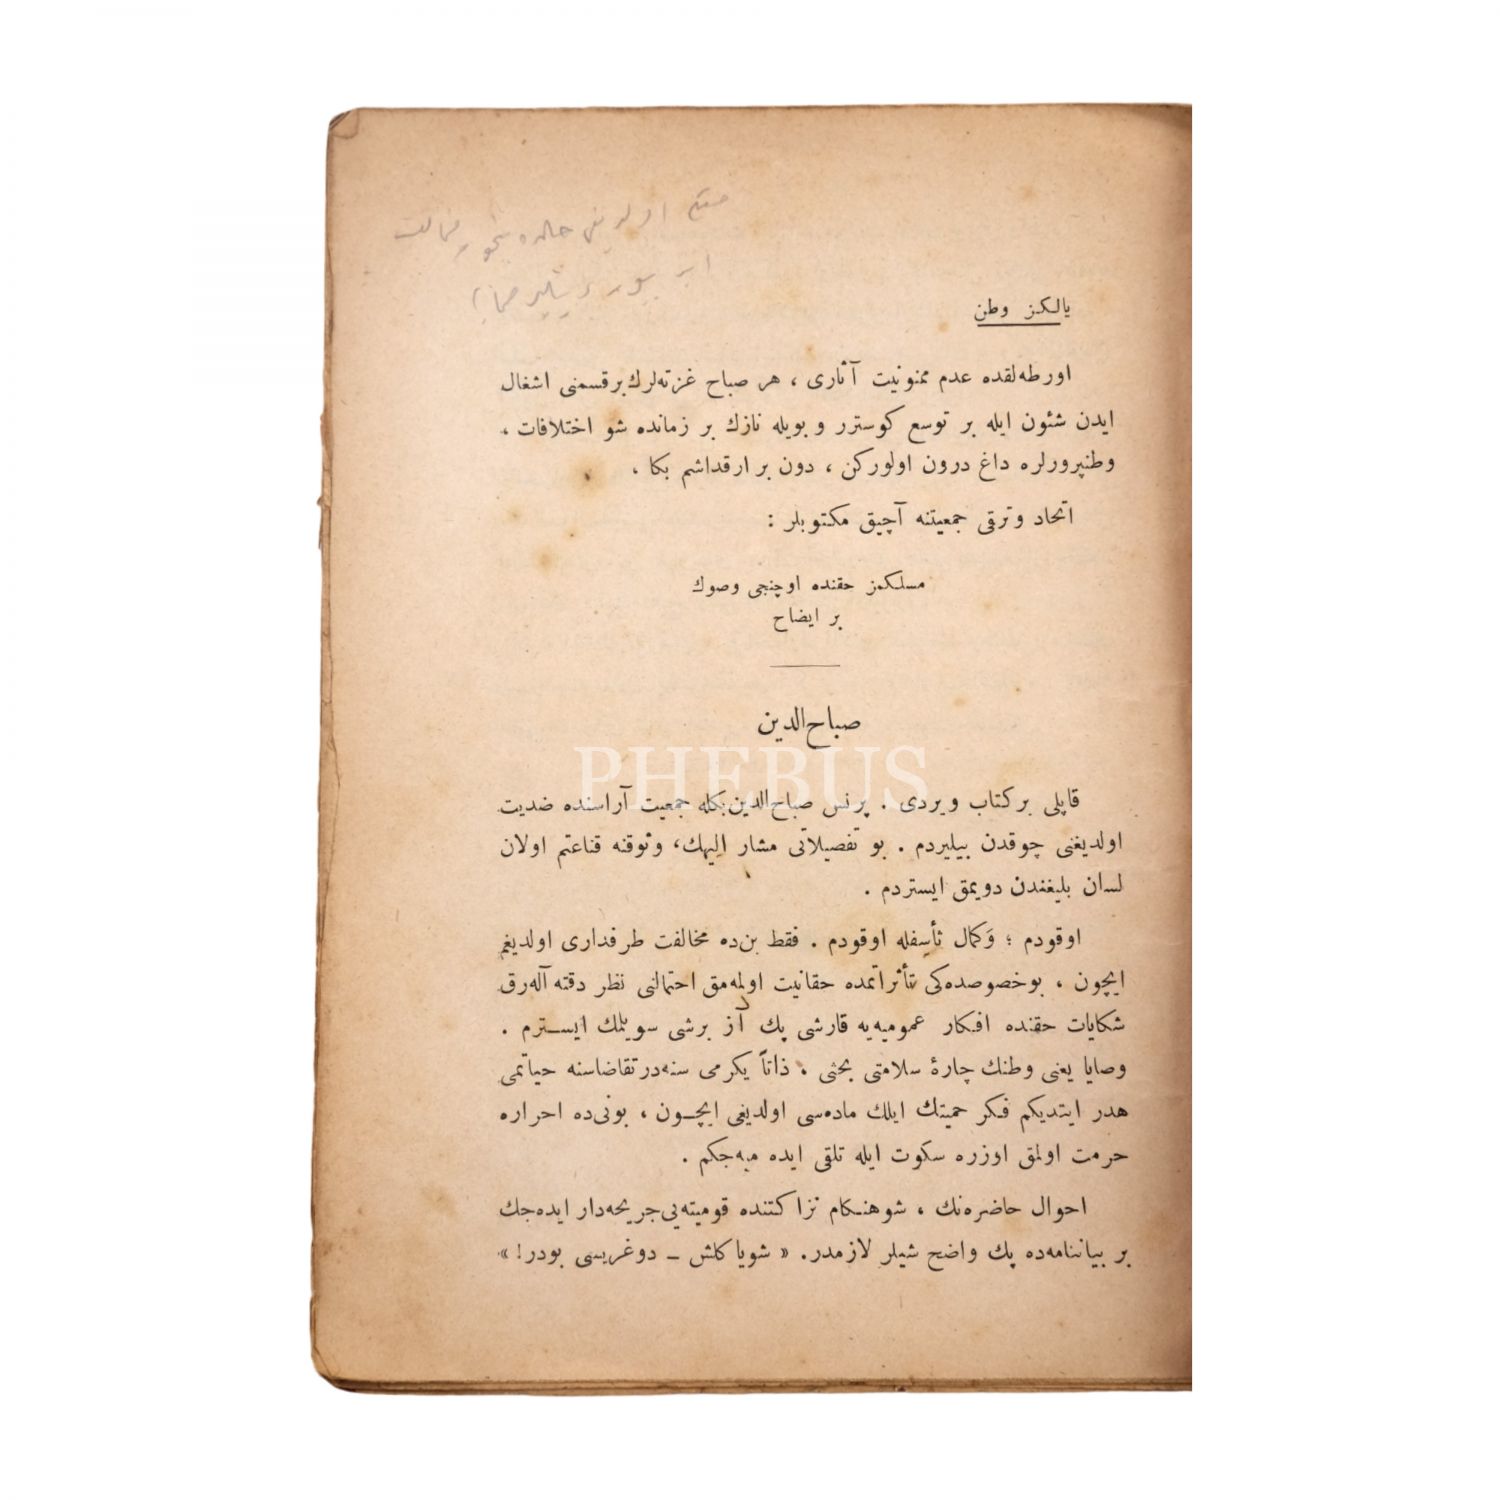 يالكز وطن
اورطه‌لقده عدم ممنونيت آثارى ، هر صباح غزته‌لرك برقسمنى اشغال
ايدن شئون ايله بر توسع كوسترر و بويله نازك بر زمانده شو اختلافات ،
وطنپرورلره داغ درون اولوركن ، دون بر ارقداشم بكا .
اتحاد وترقى جمعيتنه آچيق مكتوبلر :
مسلكمز حقنده اوچنجى وصوك
بر ايضاح
صباح‌الدين
PHEBUS
قاپلى بركتاب ويردى . پرنس صباح‌الدين‌بكله جمعيت آراسنده ضديت
اولديغنى چوقدن بيليردم . بو تفصيلاتى مشار اليهك، وثوقنه قناعتم اولان
لسان بليغندن دويمق ايستردم .
اوقودم ؛ وكمال تأسفله اوقودم . فقط بن‌ده مخالفت طرفدارى اولديغم
ايچون ، بوخصوصده‌كى تأثراتمده حقانيت اولمه‌مق احتمالنى نظر دقته آله‌رق
شكايات حقنده افكار عموميه‌يه قارشى پك آز برشى سويلمك ايسترم .
وصايا يعنى وطنك چارۀ سلامتى بحثى ، ذاتاً يكرمى سنه‌در تقاضاسنه حياتمى
هدر ايتديكم فكر حميتك ايلك ماده‌سى اولديغى ايچون ، بونى‌ده احراره
حرمت اولمق اوزره سكوت ايله تلقى ايده ميه‌جكم .
احوال حاضره‌نك ، شوهنكام نزاكتنده قوميته‌يى جريحه‌دار ايده‌جك
بر بياننامه‌ده پك واضح شيلر لازمدر. « شوياكلش ـ دوغريسى بودر! »